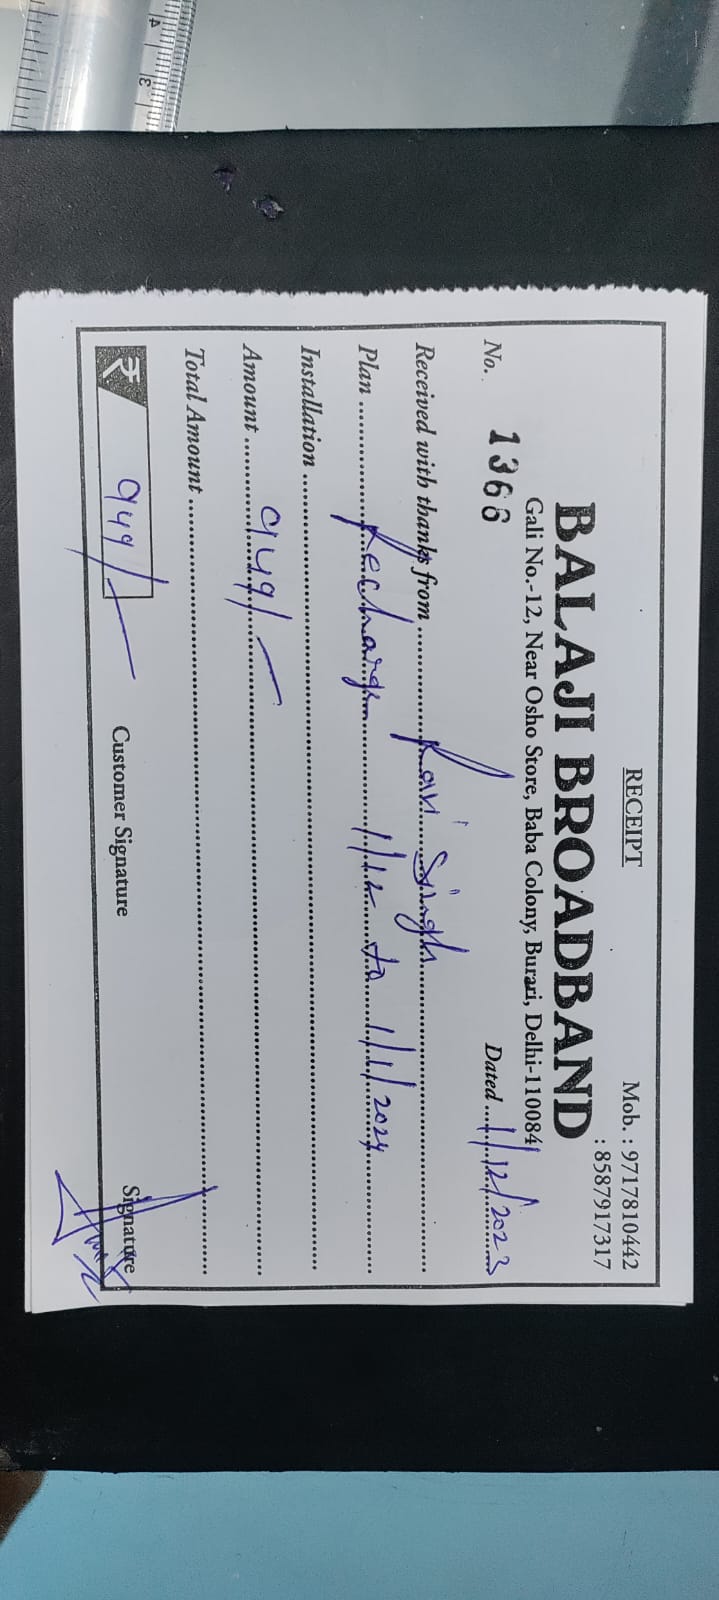 RECEIPT
Mob. : 9717810442
: 8587917317
BALAJI BROADBAND
Gali No.-12, Near Osho Store, Baba Colony, Burari, Delhi-110084
No. 1366 Dated 1/12/2023
Received with thanks from Ravi Singh
Plan Recharge 1/12 to 1/1/2024
Installation
Amount 949/-
Total Amount
₹ 949/-
Customer Signature Signature
4 3